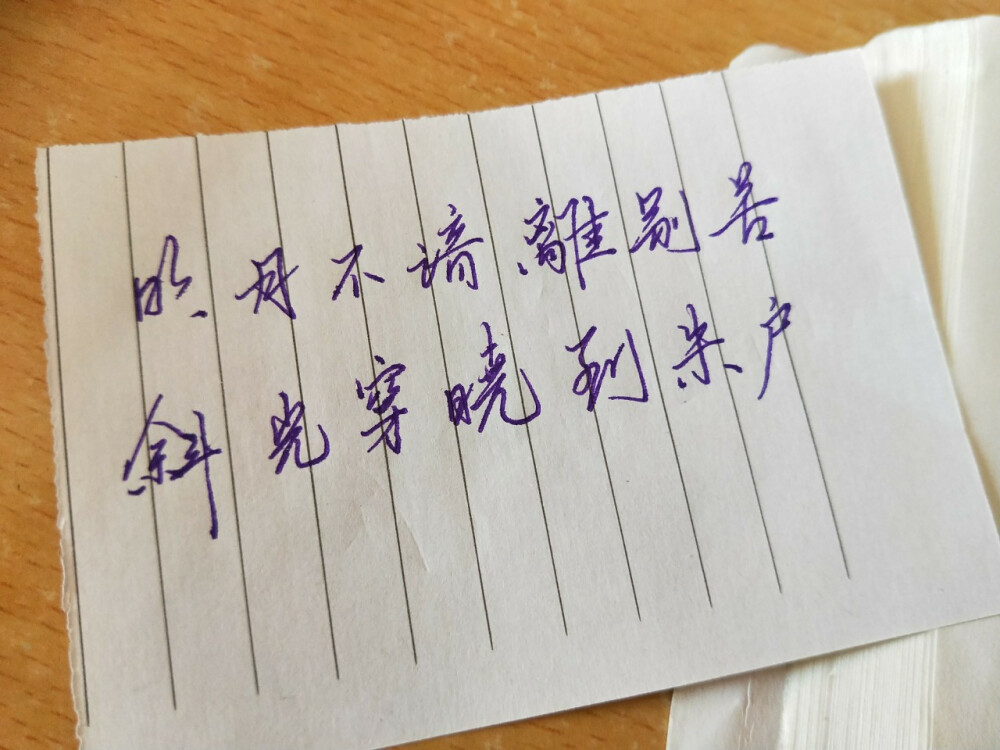 明月不谙離别苦
斜光穿晓到朱户